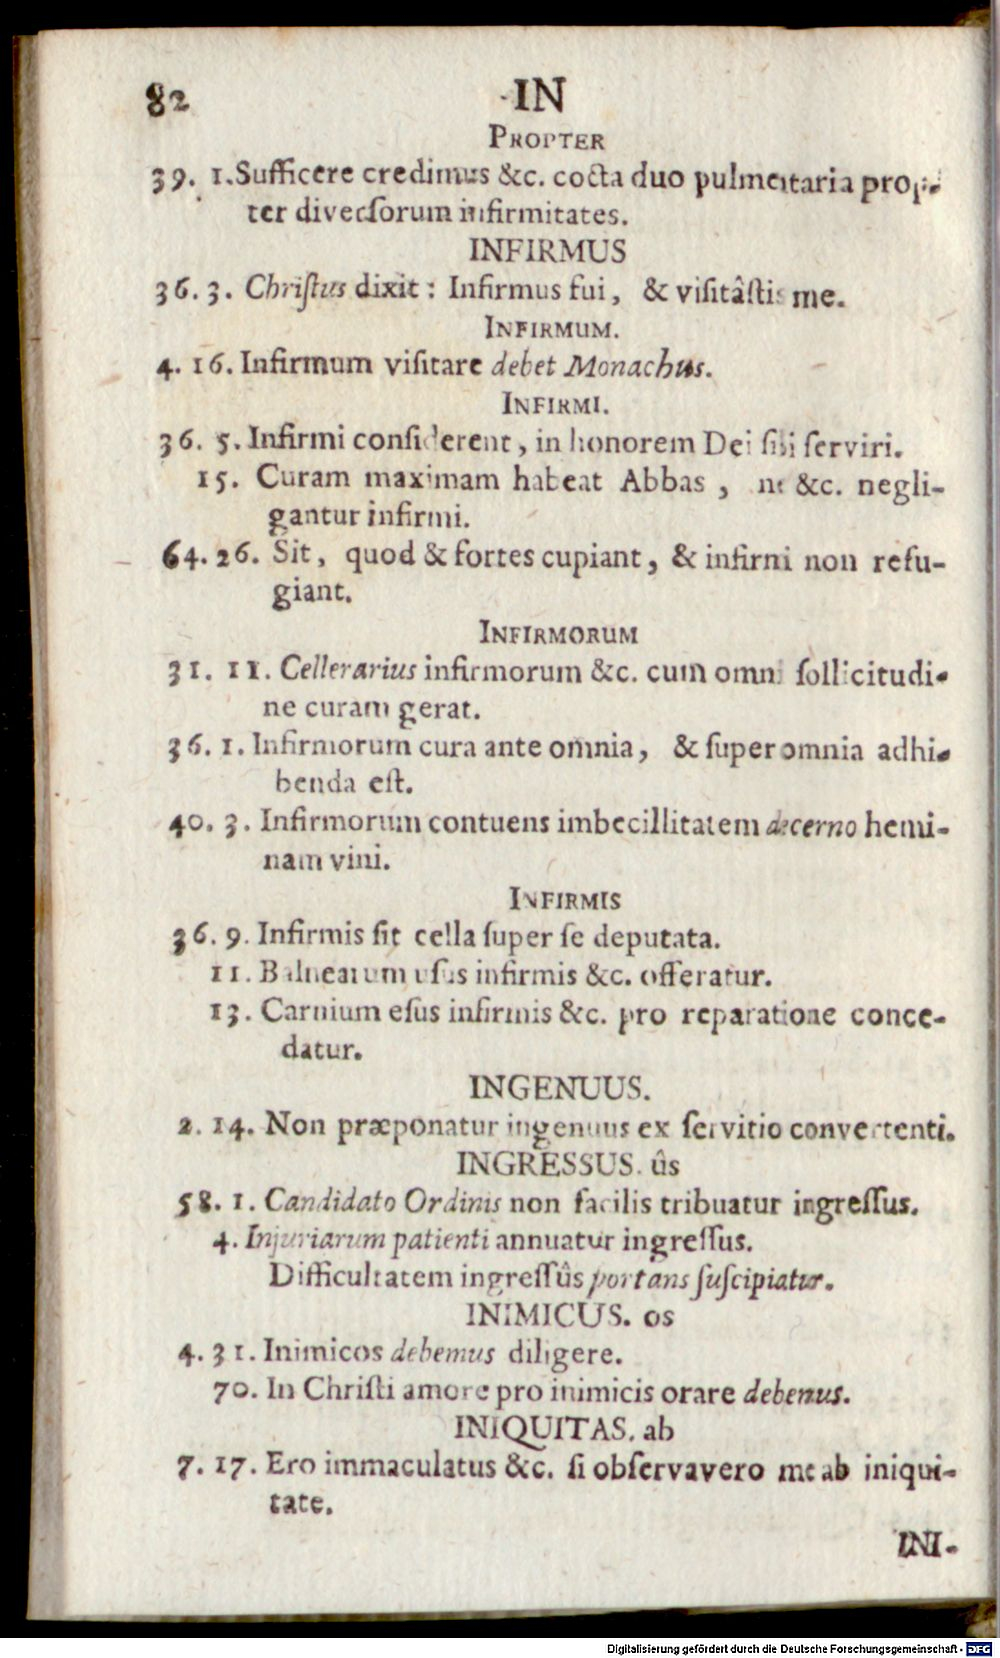 82 IN
PROPTER
39. 1. Sufficere credimus &c. cocta duo pulmentaria prop-
ter diversorum infirmitates.
INFIRMUS
36. 3. Chriſtus dixit: Infirmus fui, & viſitâſtis me.
INFIRMUM.
4. 16. Infirmum viſitare debet Monachus.
INFIRMI.
36. 5. Infirmi conſiderent, in honorem Dei ſibi ſerviri.
15. Curam maximam habeat Abbas, ne &c. negli-
gantur infirmi.
64. 26. Sit, quod & fortes cupiant, & infirmi non refu-
giant.
INFIRMORUM
31. 11. Cellerarius infirmorum &c. cum omni ſollicitudi-
ne curam gerat.
36. 1. Infirmorum cura ante omnia, & ſuper omnia adhi-
benda eſt.
40. 3. Infirmorum contuens imbecillitatem decerno hemi-
nam vini.
INFIRMIS
36. 9. Infirmis ſit cella ſuper ſe deputata.
11. Balnearum uſus infirmis &c. offeratur.
13. Carnium eſus infirmis &c. pro reparatione conce-
datur.
INGENUUS.
2. 14. Non præponatur ingenuus ex ſervitio convertenti.
INGRESSUS. ûs
58. 1. Candidato Ordinis non facilis tribuatur ingreſſus.
4. Injuriarum patienti annuatur ingreſſus.
Difficultatem ingreſſûs portans ſuſcipiatur.
INIMICUS. os
4. 31. Inimicos debemus diligere.
70. In Chriſti amore pro inimicis orare debemus.
INIQUITAS. ab
7. 17. Ero immaculatus &c. ſi obſervavero me ab iniqui-
tate.
INI-
Digitalisierung gefördert durch die Deutsche Forschungsgemeinschaft - DFG